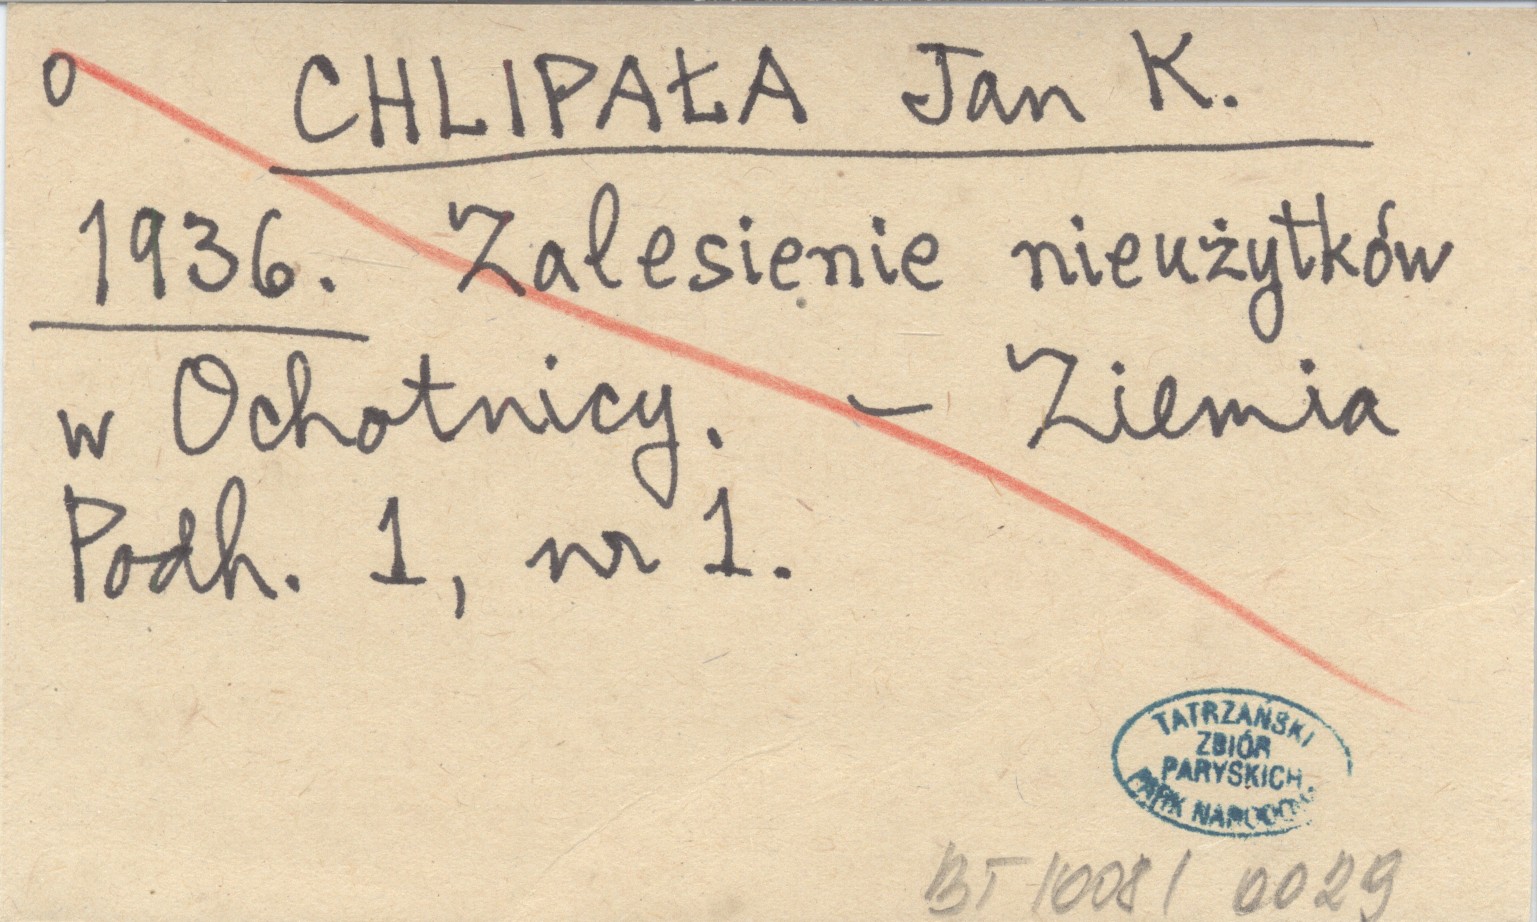 o CHLIPAŁA Jan K.
1936. Zalesienie nieużytków
w Ochotnicy. – Ziemia
Podh. 1, nr 1.
TATRZAŃSKI
ZBIÓR
PARYSKICH
PARK NARODOWY
BT 1008 / 0029